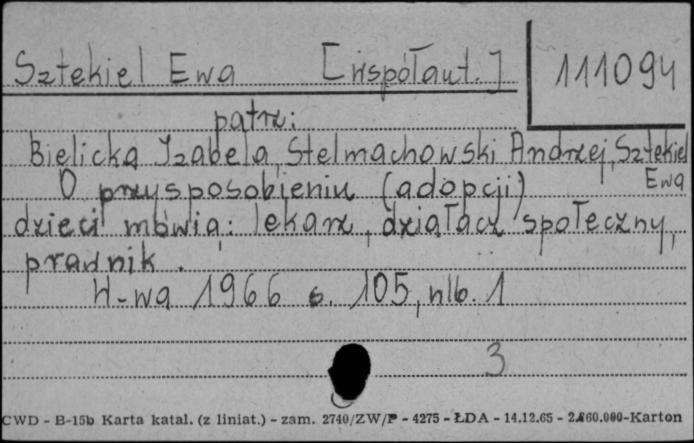 Sztekiel Ewa [współaut.] 111094
patrz:
Bielicka Izabela, Stelmachowski Andrzej, Sztekiel
Ewa
O przysposobieniu (adopcji)
dzieci mówią: lekarz, działacz społeczny,
prawnik.
W-wa 1966 s. 105, nlb. 1
3
CWD - B-15b Karta katal. (z liniat.) - zam. 2740/ZW/P - 4275 - ŁDA - 14.12.65 - 2.860.000-Karton